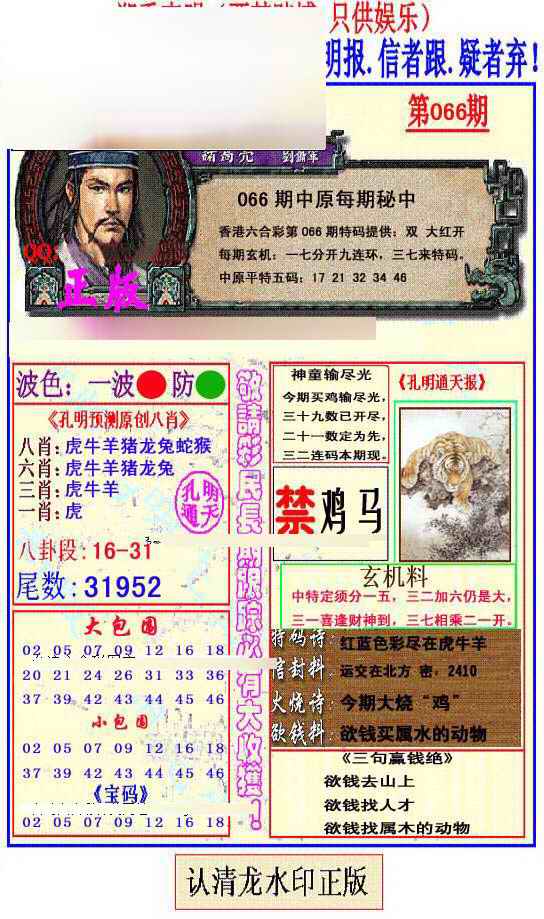 只供娱乐）
明报.信者跟.疑者弃！
第066期
诸葛亮 刘萧军
066期中原每期秘中
香港六合彩第066期特码提供：双 大红开
每期玄机：一七分开九连环，三七来特码。
中原平特五码：17 21 32 34 46
QQ
正版
波色：一波 防
《孔明预测原创八肖》
八肖：虎牛羊猪龙兔蛇猴
六肖：虎牛羊猪龙兔
三肖：虎牛羊
一肖：虎
孔明
通天
八卦段：16-31
尾数：31952
大包围
02 05 07 09 12 16 18
20 21 24 26 31 33 36
37 39 42 43 44 45 46
小包围
02 05 07 09 12 16 18
37 39 42 43 44 45 46
《宝码》
02 05 07 09 12 16 18
敬請彩民長期跟踪必有大收獲！
神童输尽光
今期买鸡输尽光，
三十九数已开尽，
二十一数定为先，
三二连码本期现。
《孔明通天报》
禁鸡马
玄机料
中特定须分一五，三二加六仍是大，
三一喜逢财神到，三七相乘二一开。
特码诗：红蓝色彩尽在虎牛羊
信封料：运交在北方 密，2410
火烧诗：今期大烧“鸡”
欲钱料：欲钱买属水的动物
《三句赢钱绝》
欲钱去山上
欲钱找人才
欲钱找属木的动物
认清龙水印正版